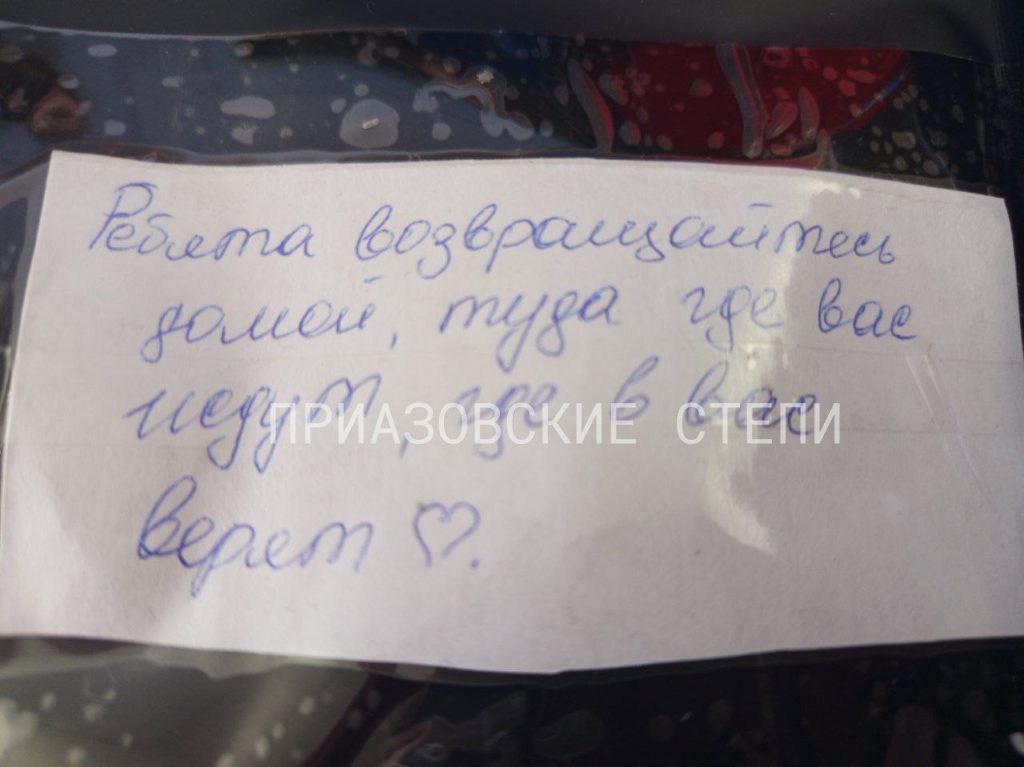 Ребята возвращайтесь
домой, туда где вас
ждут, где в вас
ПРИАЗОВСКИЕ СТЕПИ
верят ♡.